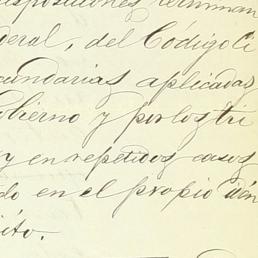 isposiciones terminan
deral, del Codigo Ci
cundarias aplicadas
obierno y por los tri
y en repetidos casos
do en el propio
ito.